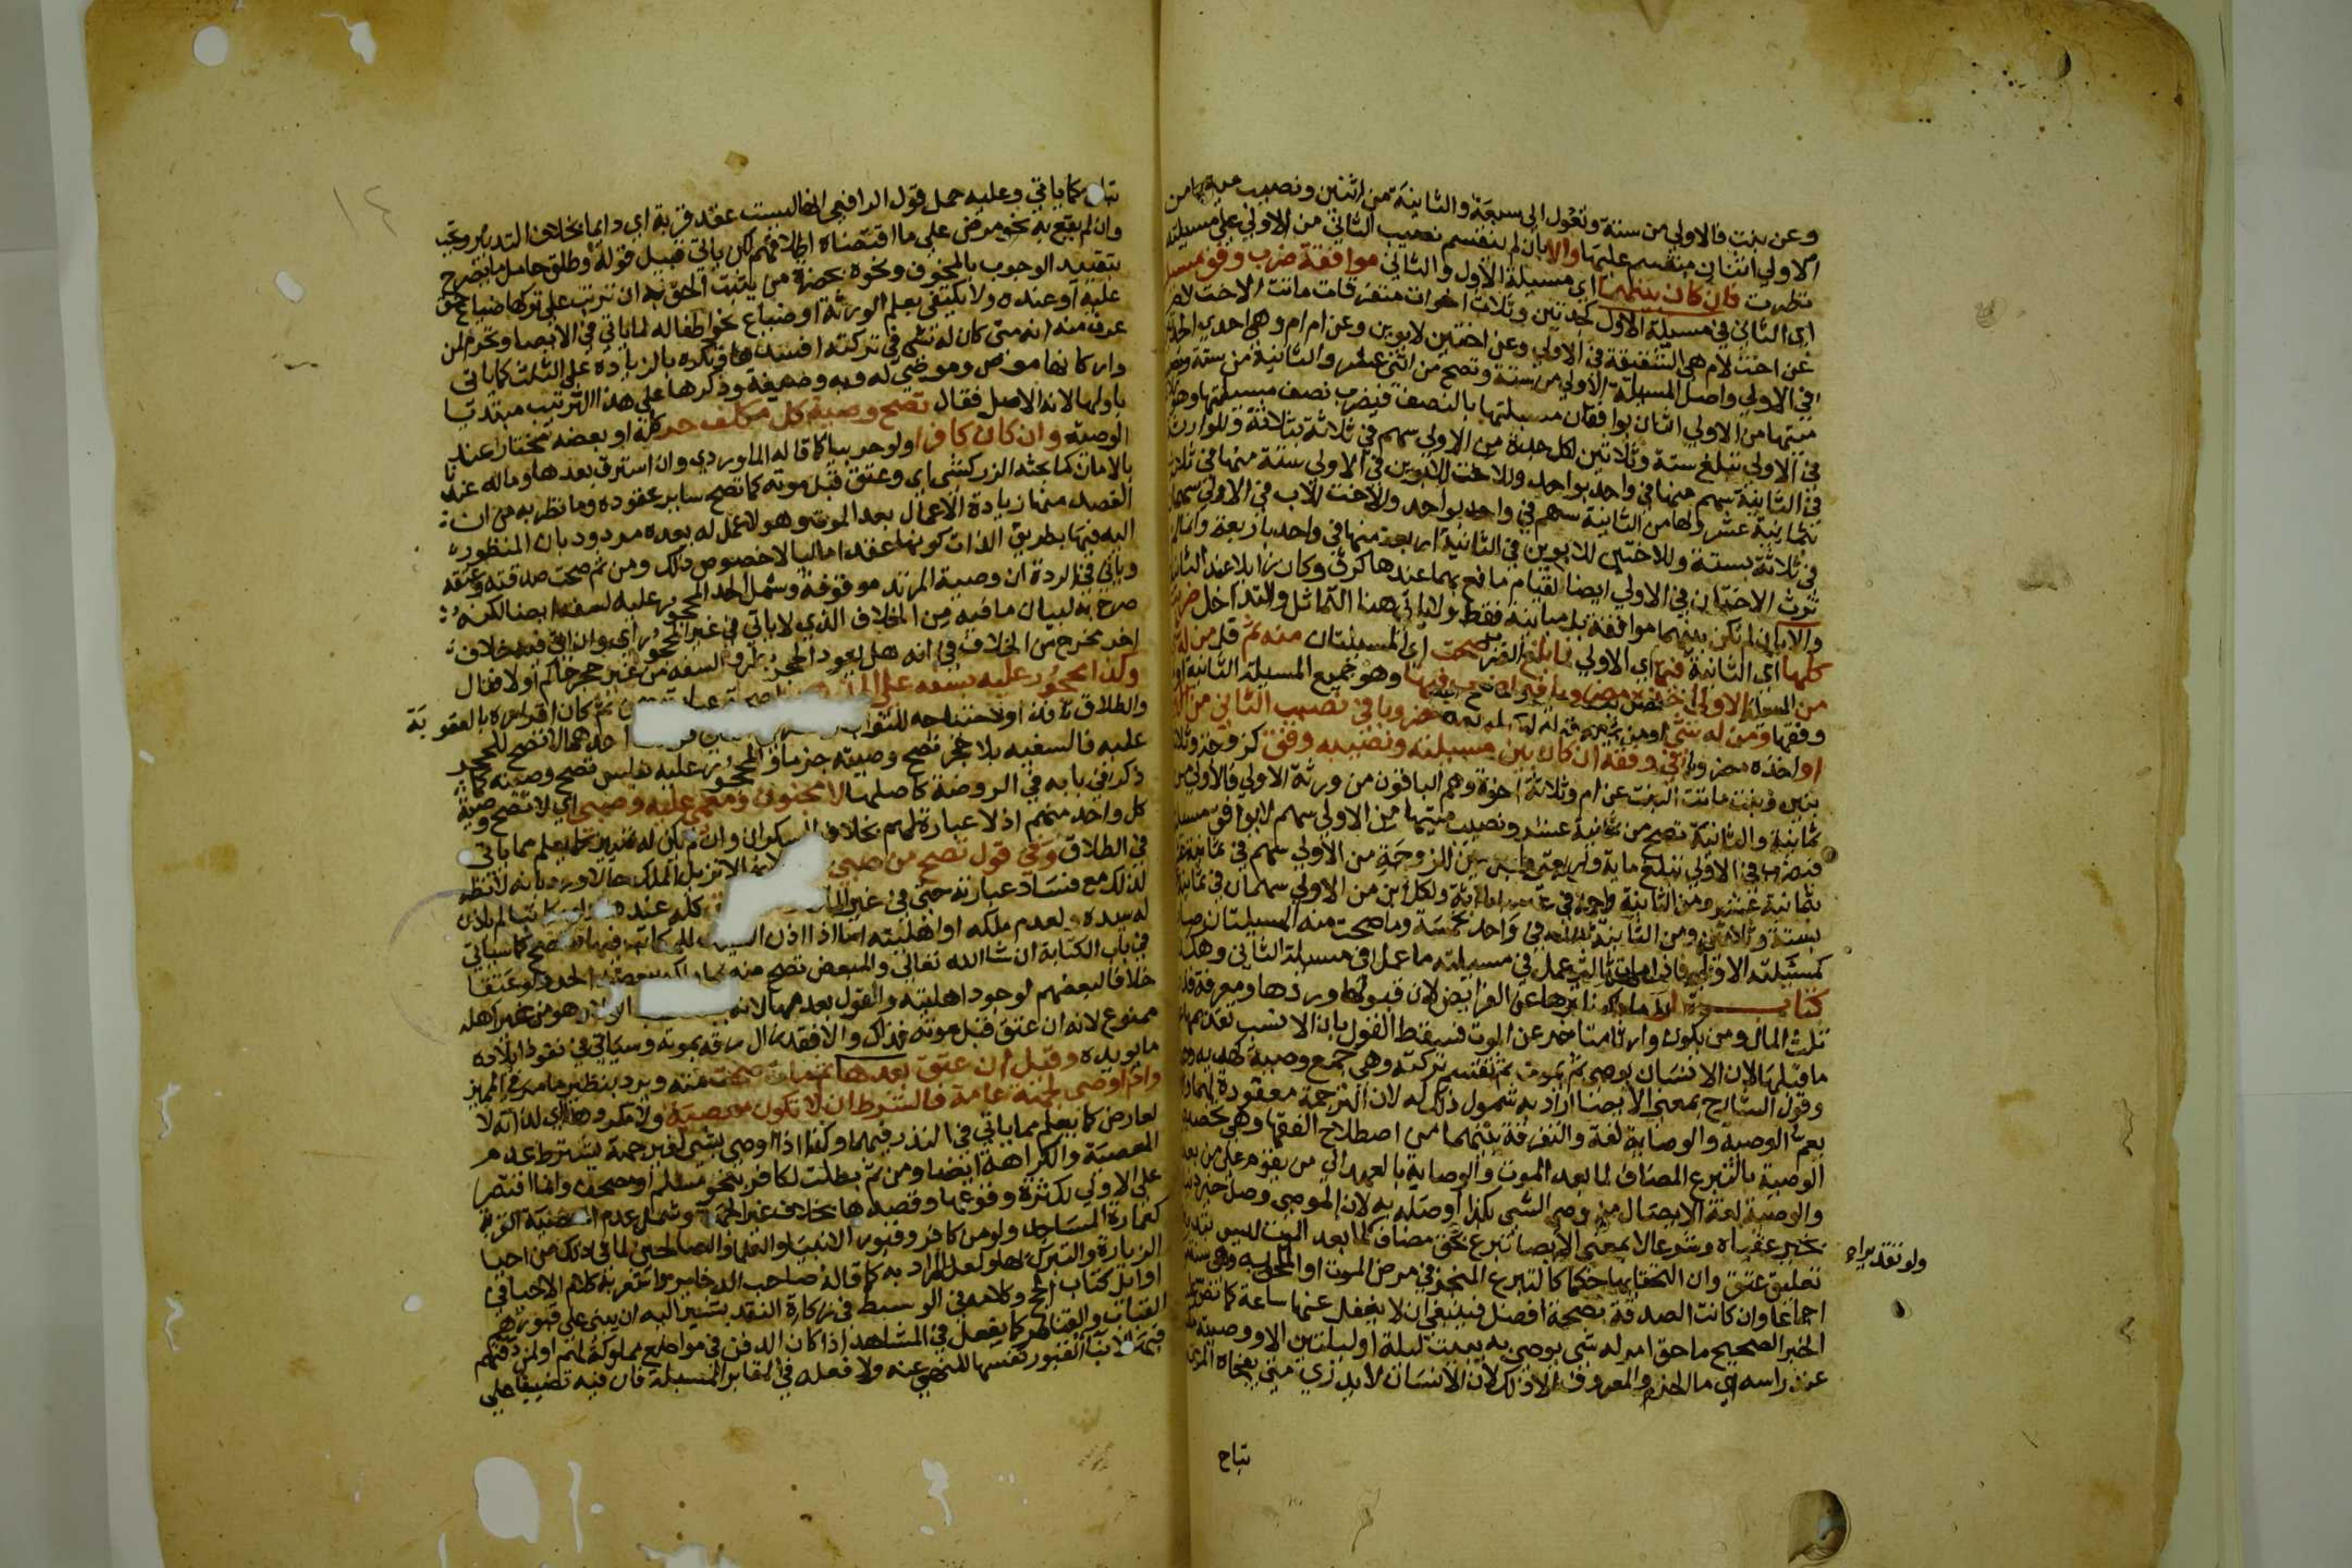 وعن بنت فالاولي من ستة وتعول الي سبعة والثانية من اثنين ونصيب ميتها من
الاولي اثنان منقسم عليهما والا بان لم ينقسم نصيب الثاني من الاولي علي مسيلته
نظرت فان كان بينهما اي مسيلة الاول والثاني موافقة ضرب وفق مسيلته
اي الثاني في مسيلة الاول كجدتين وثلاث اخوات متفرقات ماتت الاخت لام
عن اخت لام هي الشقيقة في الاولي وعن اختين لابوين وعن ام ام وهي احدي الجد
في الاولي واصل المسيلة الاولي من ستة وتصح من اثني عشر والثانية من ستة ونصيب
ميتها من الاولي اثنان يوافقان مسيلتها بالنصف فيضرب نصف مسيلتها وهو
في الاولي تبلغ ستة وثلاثين لكل جدة من الاولي سهم في ثلاثة بثلاثة وللوارثة
في الثانية سهم منها في واحد بواحد وللاخت للابوين في الاولي ستة منها في ثلاثة
بثمانية عشر ولها من الثانية سهم في واحد بواحد وللاخت للاب في الاولي سهمان
في ثلاثة بستة وللاختين للابوين في الثانية اربعة منها في واحد باربعة
ترث الاختان في الاولي ايضا لقيام مانع بهما عندها كرق وكان زايلا عند الثانية
والا بان لم تكن بينهما موافقة بل مباينة فقط ولاياتي هنا التماثل والتداخل ضرب
كلها اي الثانية فيها اي الاولي فما بلغ الضرب صحت اي المسيلتان منه ثم قل من له
من المسيلة الاولي وهو جميع المسيلة الثانية او
وفقها ومن له شي من الثانية في نصيب الثاني من الاولي
او اخذه مضروبا في وفقه ان كان بين مسيلته ونصيبه وفق كزوجة وثلاثة
بنين وبنت ماتت البنت عن ام وثلاثة اخوة وهم الباقون من ورثة الاولي فالاولي من
ثمانية والثانية تصح من ثمانية عشر ونصيب ميتها من الاولي سهم لايوافق مسيلته
فتضرب في الاولي تبلغ ماية واربعة واربعين للزوجة من الاولي سهم في ثمانية عشر
بثمانية عشر ومن الثانية ثلاثة في واحد بثلاثة ولكل ابن من الاولي سهمان في ثمانية
بستة وثلاثين ومن الثانية خمسة في واحد بخمسة وما صحت منه المسيلتان صار
كمسيلته الاولي فاذا مات ثالث عمل في مسيلته ما عمل في مسيلة الثاني وهكذا
كتاب الوصايا اخرها عن الفرايض لان قبولها وردها ومعرفة قدر
ثلث المال ومن يكون وارثا متاخر عن الموت فسقط القول بان الانسب تقديمها
ما قبلها لان الانسان يوصي ثم يموت ثم تقسم تركته وهي جمع وصية كهدية وهدايا
وقول الشارح بمعني الايصا اراد به شمول ذلك له لان الترجمة معقودة لهما
يعم الوصية والوصاية لغة والتفرقة بينهما من اصطلاح الفقها وهي تخصيص
الوصية بالتبرع المضاف لما بعد الموت والوصاية بالعهد الي من يقوم علي من بعده
والوصية لغة الايصال من وصي الشي بكذا اوصله به لان الموصي وصل خير دنياه
بخير عقباه وشرعا لا بمعني الايصا تبرع بحق مضاف لما بعد الموت ليس بتدبير
ولو تقديرا ص
تعليق عتق وان التحقا بها حكما كالتبرع المنجز في مرض الموت او الملحق به وهي سنة
اجماعا وان كانت الصدقة بصحة افضل فينبغي ان لا يغفل عنها ساعة كما نص
الخبر الصحيح ما حق امرء له شي يوصي به يبيت ليلة او ليلتين الا ووصيته
عند راسه اي ما الحزم والمعروف الا ذلك لان الانسان لا يدري متي يفجاه الموت
تباح
١٤
تباح كما ياتي وعليه حمل قول الرافعي انها ليست عقد قربة اي دايما بخلاف التدبير وتجب
وان لم يقع به نحو مرض علي ما اقتضاه اطلاقهم لكن ياتي قبيل قوله وطلق حامل ما يصرح
بتقييد الوجوب بالمخوف ونحوه بحضرة من يثبت الحق به ان ترتب علي تركها ضياع حق
عليه او عنده ولا يكتفي بعلم الورثة او ضياع نحو اطفاله لما ياتي في الايصا وتحرم لمن
عرف منه انه متي كان له شي في تركته افسدها وتكره بالزيادة علي الثلث كما ياتي
واركانها موص وموصي له وبه وصيغة وذكرها علي هذا الترتيب مبتديا
باولها لانه الاصل فقال تصح وصية كل مكلف حر كله او بعضه مختار عند
الوصية وان كان كافرا ولو حربيا كما قاله الماوردي وان استرق بعدها وماله عندنا
بالامان كما بحثه الزركشي اي وعتق قبل موته كما تصح ساير عقوده وما نظر به من ان
القصد منها زيادة الاعمال بعد الموت وهو لا عمل له بعده مردود بان المنظور
اليه فيها بطريق الذات كونها عقدا ماليا لا خصوص ذلك ومن ثم صحت صدقته وعتقه
وياتي في الردة ان وصية المرتد موقوفة وشمل الحد المحجور عليه لسفه ايضا لكنه
صرح به لبيان ما فيه من الخلاف الذي لا ياتي في غير المحجور اي وان اتي فيه خلاف
اخر مخرج من الخلاف في انه هل يعود الحجر بطرو السفه من غير حجر حاكم او لا فقال
وكذا محجور عليه بسفه علي المذهب
والطلاق نافذ او لاحتياجه للثواب
عليه فالسفيه بلا حجر تصح وصيته جزما والمحجور عليه بفلس تصح وصيته كما
ذكر في بابه في الروضة كاصلها لا مجنون ومغمي عليه وصبي اي لا تصح وصية
كل واحد منهم اذ لا عبارة لهم بخلاف السكران وان لم يكن له تمييز كما يعلم مما ياتي
في الطلاق وفي قول تصح من صبي
لذلك مع فساد عبارته حتي في غير المال
له سيده لعدم ملكه او اهليته اما اذا اذن السيد للمكاتب فيها فتصح كما سياتي
في باب الكتابة ان شا الله تعالي والمبعض تصح منه
خلافا لبعضهم لوجود اهليته والقول بعدمها لانه
ممنوع لانه ان عتق قبل موته فذاك والا فقد زال رقه بموته وسياتي في نفوذ ايلاده
ما يويده وقيل ان عتق بعدها ثم مات صحت منه ويرد بنظير ما مر في المميز
واذا اوصي لجهة عامة فالشرط ان لا تكون معصية ولا مكروهة اي لذاته لا
لعارض كما يعلم مما ياتي في النذر فيهما وكذا اذا اوصي بشي لغير جهة يشترط عدم
المعصية والكراهة ايضا ومن ثم بطلت لكافر بنحو مسلم او مصحف وانما اقتصر
علي الاولي لكثرة وقوعها وقصدها بخلاف غير الجهة وشمل عدم المعصية القربة
كعمارة المساجد ولو من كافر وقبور الانبيا والعلما والصالحين لما في ذلك من احيا
الزيارة والتبرك بها ولعل المراد به كما قاله صاحب الذخاير واشعر به كلام الاحيا في
اوايل كتاب الحج وكلامه في الوسيط في زكاة النقد يشير اليه ان يبني علي قبورهم
القباب والقناطر كما يفعل في المشاهد اذا كان الدفن في مواضع مملوكة لهم او لمن دفنهم
فيها لا بنا القبور نفسها للنهي عنه ولا فعله في المقابر المسبلة فان فيه تضييقا علي